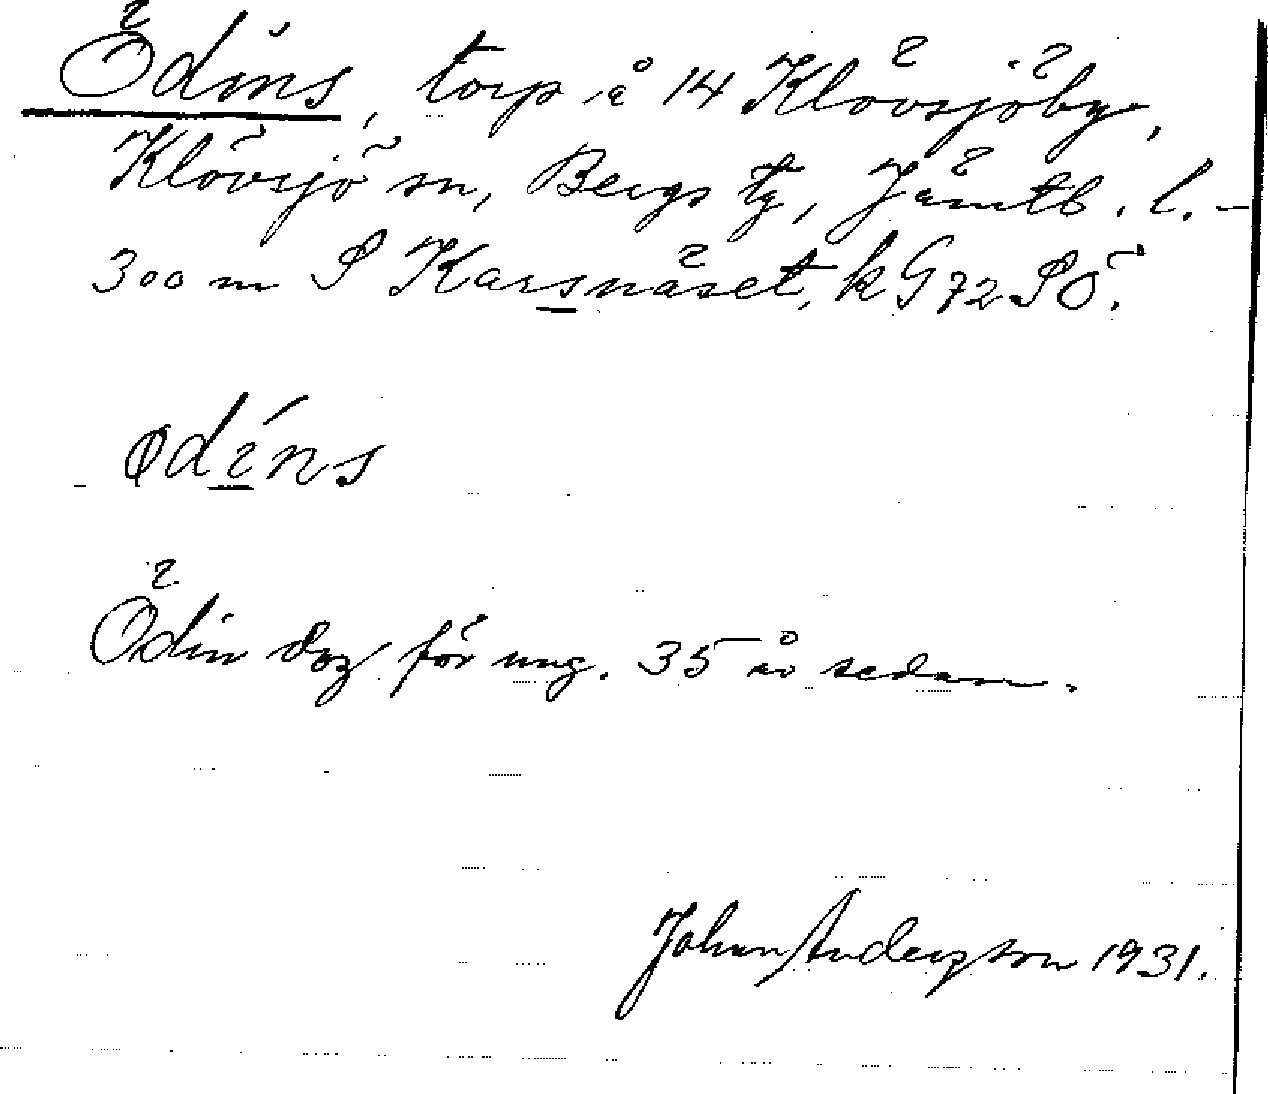 Ödins, torp å 14 Klövsjöby,
Klövsjö sn, Bergs tg, Jämtl. l. -
300 m S Karsnäset, k G72 SÖ.
ødíns
Ödin dog för ung. 35 år sedan.
Johan Anderson 1931.